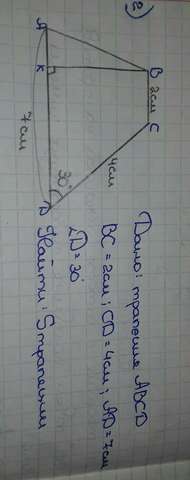 2)
A
K
B
2см
C
4см
30°
D
7см
Дано: трапеция ABCD
BC = 2см; CD = 4см; AD = 7см
∠D = 30°
Найти: S трапеции